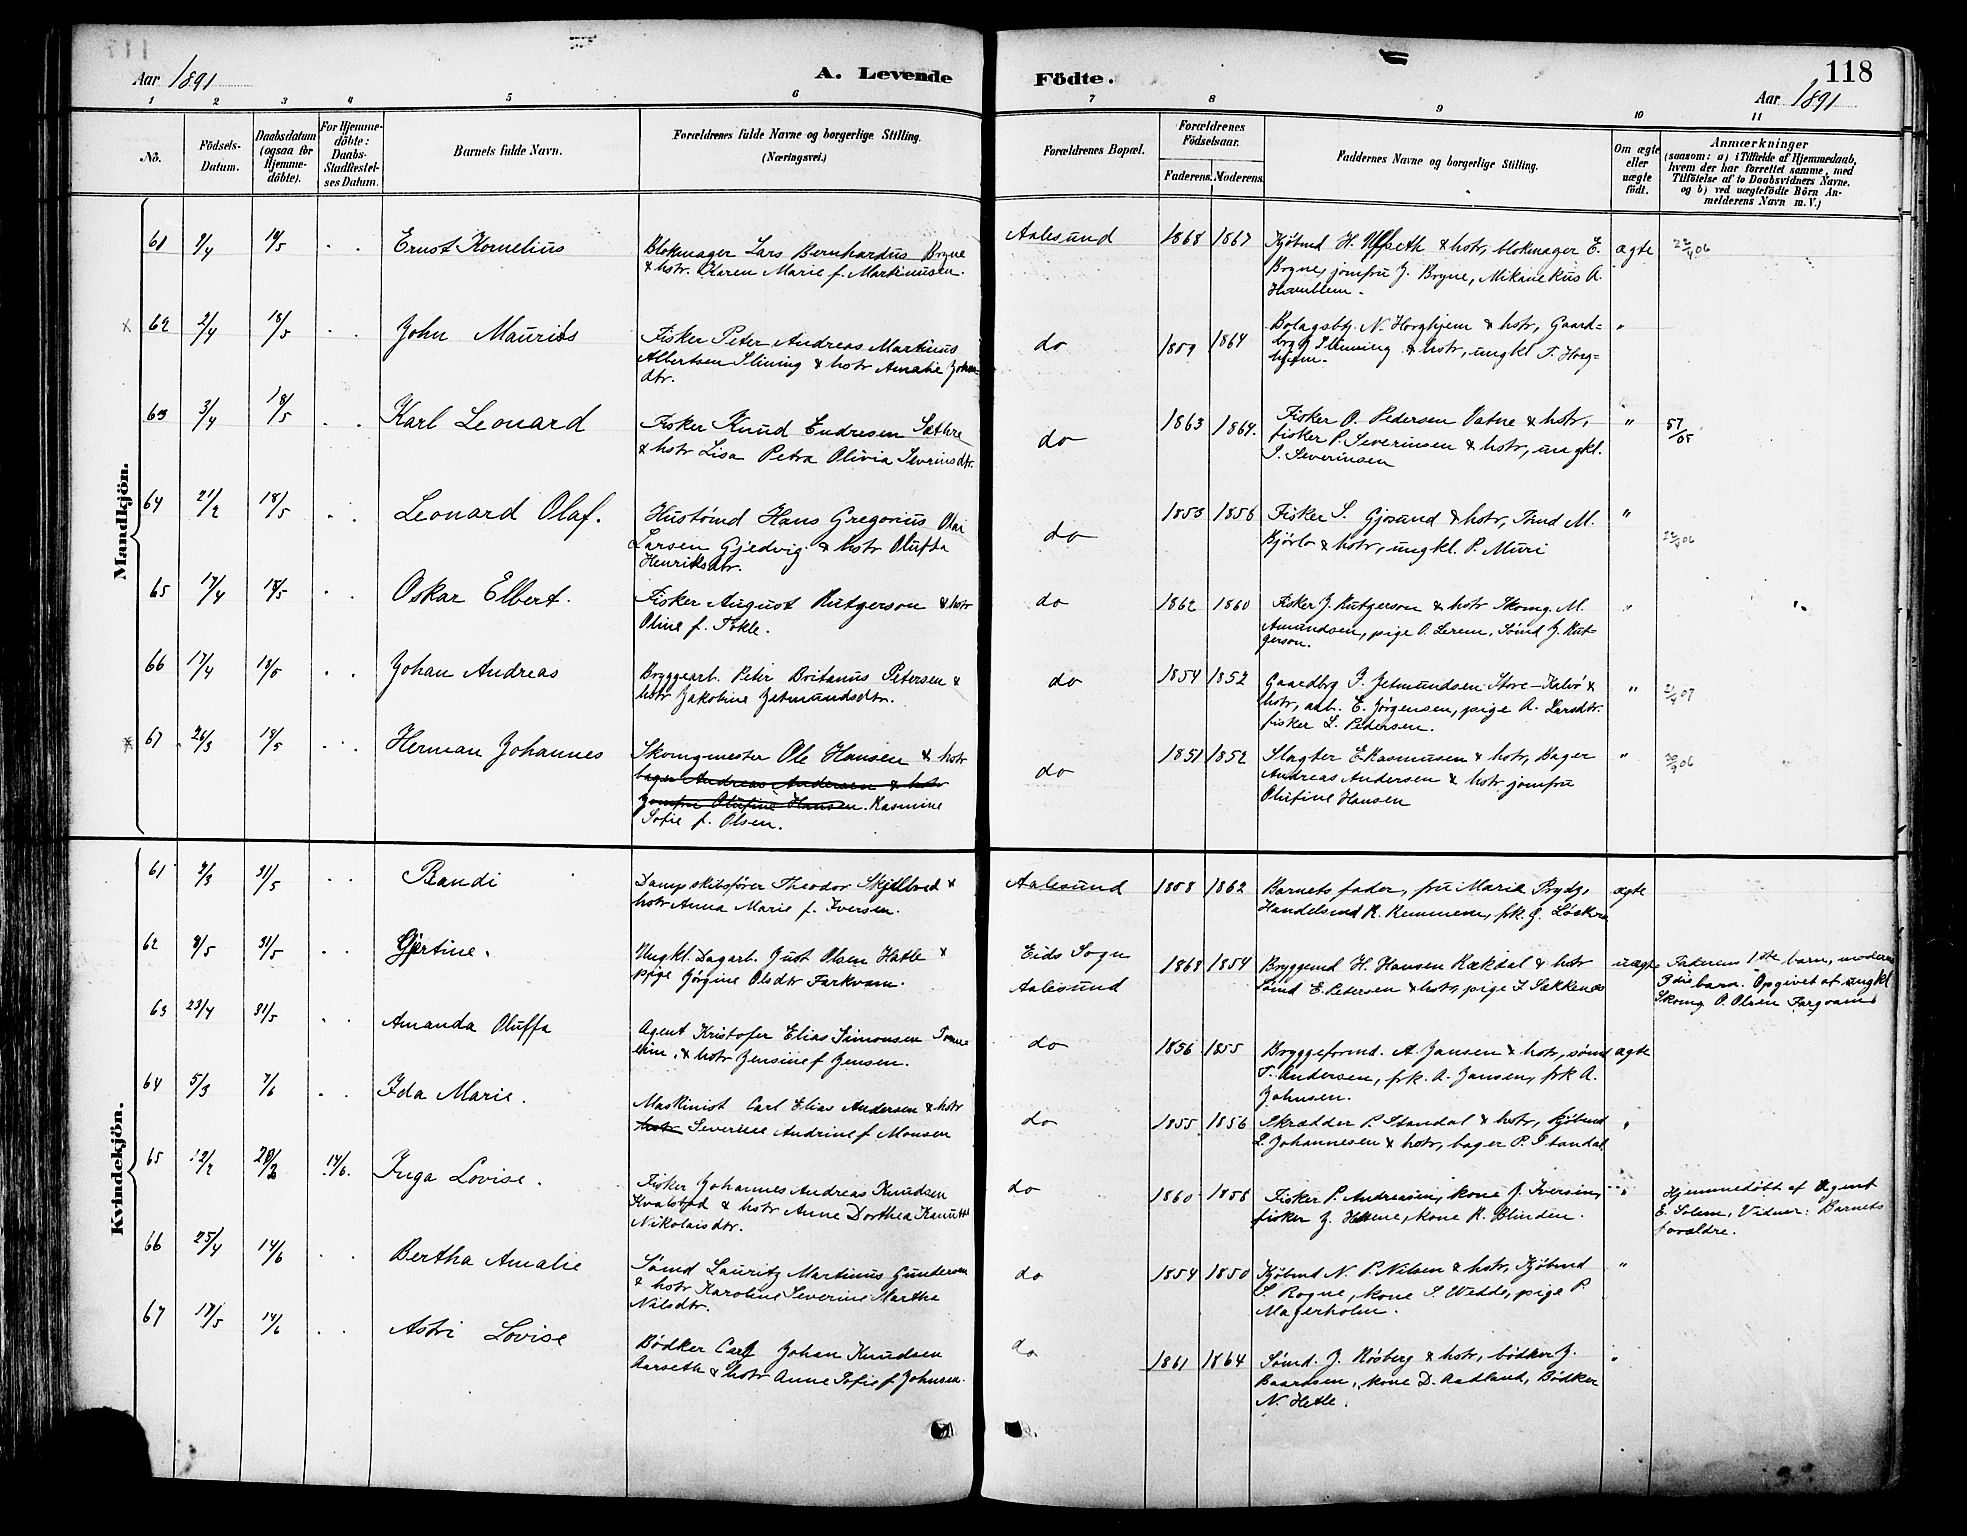 Aar 1891
A. Levende
Födte.
118
Aar 1891
1 2 3 4 5 6 7 8 9 10 11
No.
Födsels-
Datum.
Daabsdatum
(ogsaa for
Hjemme-
döbte).
For Hjemme-
döbte:
Daabs-
Stadfestel-
ses Datum.
Barnets fulde Navn.
Forældrenes fulde Navne og borgerlige Stilling.
(Næringsvei.)
Forældrenes Bopæl.
Forældrenes
Födselsaar.
Faderens. Moderens.
Faddernes Navne og borgerlige Stilling.
Om ægte
eller
uægte
födt.
Anmærkninger
(saasom: a) i Tilfælde af Hjemmedaab,
hvem der har forrettet samme, med
Tilföielse af to Daabsvidners Navne,
og b) ved uægtefödte Börn An-
melderens Navn m. V.)
Mandkjön.
61 9/4 18/5 Ernst Kornelius
Blokmager Lars Bernhardus Bryne
& hstr. Elaren Marie f. Martinusen.
Aalesund 1868 1867
Kjöbmd H. Ufseth & hstr, blokmager E.
Bryne, jomfru J. Bryne, Mikanekus A.
Hamblem.
ægte
22/4 06
62 2/4 18/5 John Maurits
Fisker Peter Andreas Martinus
Albertsen Slining & hstr Amalie John-
dtr.
do 1859 1864
Bolagsbtj. N. Horghjem & hstr, Gaard-
brg J. Slinning & hstr, ungkl T. Horg-
hjem.
"
63 3/4 18/5 Karl Leonard
Fisker Knud Endresen Sathre
& hstr Lisa Petra Olivia Severinsdtr.
do 1863 1864.
Fisker O. Pedersen Vatne & hstr,
fisker P. Severinsen & hstr, ungkl.
I. Severinsen
"
57/05
64 21/2 18/5 Leonard Olaf.
Hustömd Hans Gregorius Olai
Larsen Gjedvig & hstr Oluffa
Henriksdtr.
do 1853 1856
Fisker S. Gjosund & hstr, Tömd M.
Bjørlo & hstr, ungkl. P. Muri
"
65 17/4 18/5 Oskar Elbert.
Fisker August Rutgerson & hstr
Oline f. Fokle.
do 1862 1860
Fisker J. Rutgerson & hstr Skomg. M.
Amundsen, pige O. Lerem, Sömd J. Rut-
gerson.
"
66 17/4 18/5 Johan Andreas
Bryggearb. Peter Britanus Petersen &
hstr Jakobine Jetmundsdtr.
do 1854 1852
Gaardbrg I. Jetmundsen Store-Kalvö &
hstr, arb. E. Jörgensen, pige A. Larsdtr.
fisker L. Pedersen.
"
2/4 07
67 26/3 18/5 Herman Johannes
Skomgmester Ole Hansen & hstr
bager Andreas Andersen & hstr
Jomfru Olufine Hansen. Rasmine
Sofie f. Olsen.
do 1851 1852
Slagter E. Rasmusen & hstr, Bager
Andreas Andersen & hstr jomfru
Olufine Hansen
"
30/9 06
Kvindekjön.
61 9/3 31/5 Randi
Dampskibsförer Theodor Skjelbred &
hstr Anna Marie f. Iversen.
Aalesund 1858 1862
Barnets fader, fru Maria Brydz,
Handelsmd R. Remmem, frk. G. Löcken
ægte
62 8/5 31/5 Gjertine.
Ungkl. Dagarb. Just Olsen Hatle &
pige Jörgine Olsdtr Farkvam.
Eids Sogn
Aalesund
1868 1854
Bryggemd H. Hansen Rækdal & hstr
Sömd E. Petersen & hstr, pige I. Sakkenes
uægte
Faderens 1ste barn, moderens
3die barn. Opgivet af ungkl
Skomg. O. Olsen Fargvam
63 23/4 31/5 Amanda Oluffa
Agent Kristofer Elias Simonsen Tonne
eim, & hstr Jensine f Jensen.
do 1856 1855
Bryggeformd. A. Jansen & hstr, sömd
T. Andersen, frk. A. Jansen, frk A.
Johnsen.
ægte
64 5/3 7/6 Ida Marie.
Maskinist Carl Elias Andersen & hstr
hstr Severine Andrine f Monsen
do 1855 1856
Skrædder P. Standal & hstr, kjöbmd
L. Johannesen & hstr, bager P. Standal
"
65 12/2 20/2 14/6. Inga Lovise.
Fisker Johannes Andreas Knudsen
Kvalstad & hstr Anne Dorthea Knutt
Nikolaisdtr.
do 1860 1856
Fisker P. Andreasen, kone J. Iversen,
fisker J. Hessne, kone R. Blinden.
"
Hjemmedöbt af Agent
E. Solem, Vidner: Barnets
forældre.
66 25/4 14/6 Bertha Amalie
Sömd Lauritz Martinus Gundersen
& hstr Karoline Severine Martha
Nilsdtr.
do 1854 1850
Kjöbmd N. P. Nilsen & hstr, Kjöbmd
S. Rogne, kone S. Wedde, pige P.
Magerholm.
"
67 17/5 14/6 Astri Lovise
Bödker Carl Johan Knudsen
Aarseth & hstr Anne Sofie f Johnsen.
do 1861 1864
Sömd. J. Rösberg & hstr, bödker J.
Baardsen, kone D. Aadland, Bödker
N. Hetle.
"